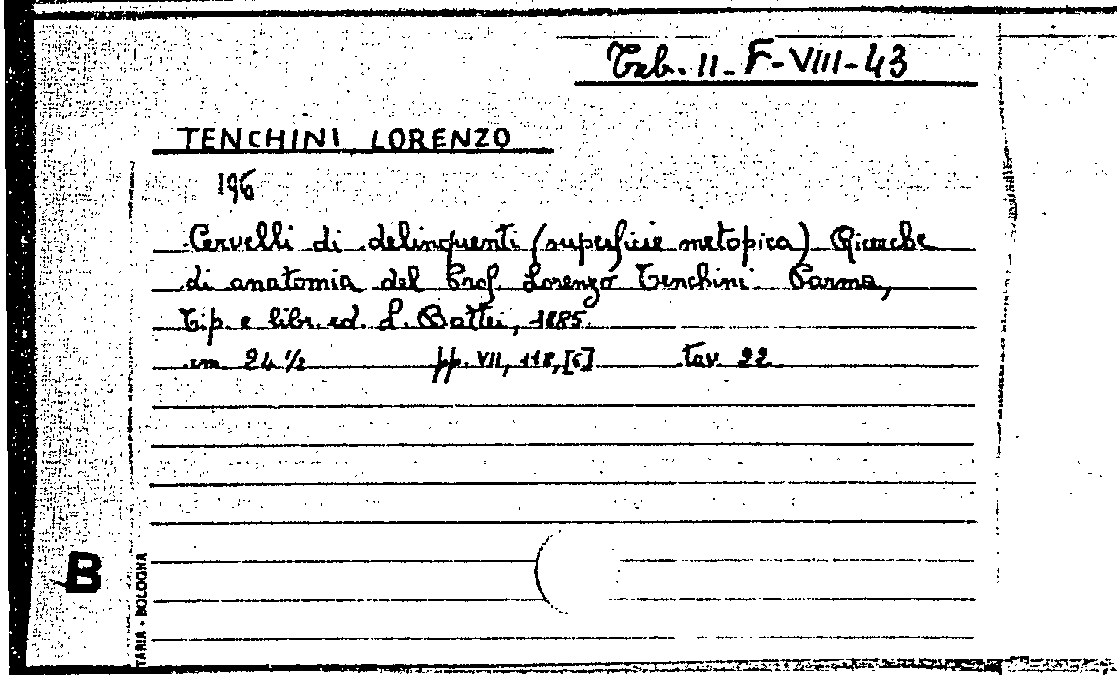 Tab. II - F - VIII - 43
TENCHINI LORENZO
196
Cervelli di delinquenti (superficie metopica) Ricerche
di anatomia del Prof. Lorenzo Tenchini. Parma,
Tip. e libr. ed. L. Battei, 1885.
cm. 24 1/2 pp. VII, 118, [6] tav. 22
B
TARIA - BOLOGNA